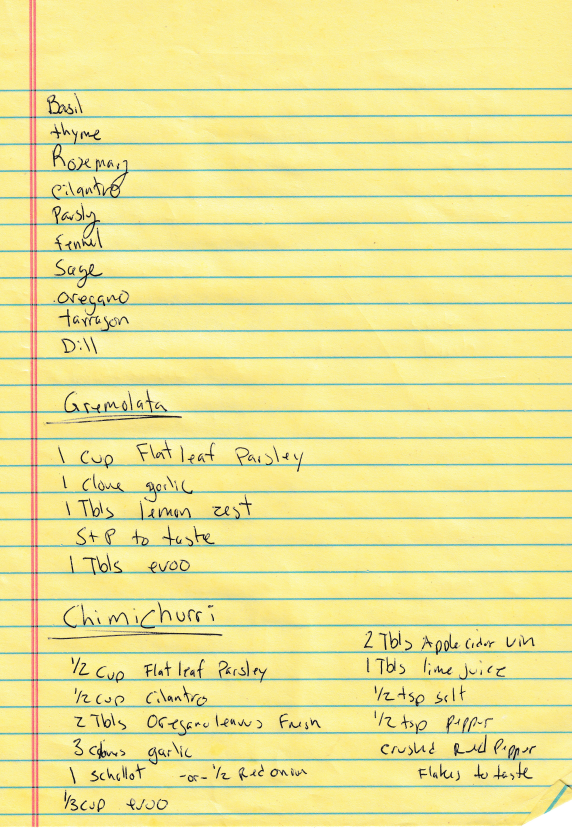 Basil
thyme
Rosemary
cilantro
Parsly
fennel
Sage
oregano
tarragon
Dill
Gremolata
1 cup Flat leaf Parsley
1 clove garlic
1 Tbls lemon zest
S+P to taste
1 Tbls evoo
Chimichurri
1/2 cup Flat leaf Parsley
1/2 cup cilantro
2 Tbls Oregano leaves Fresh
3 cloves garlic
1 schallot -or- 1/2 Red onion
1/3 cup evoo
2 Tbls Apple cider vin
1 Tbls lime juice
1/2 tsp salt
1/2 tsp pepper
crushed Red Pepper
Flakes to taste